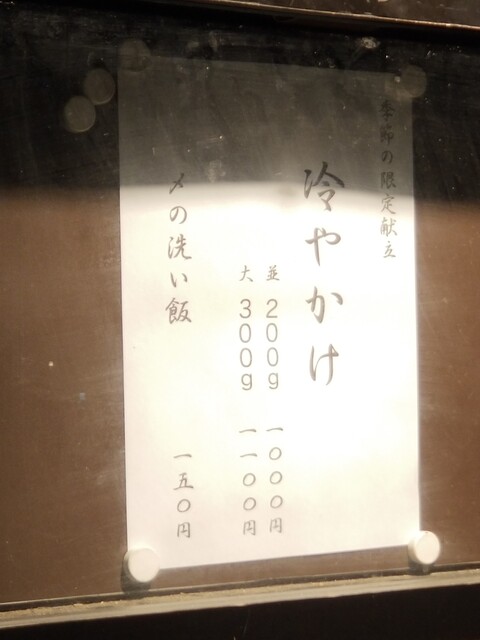 季節の限定献立
冷やかけ
並 200g 一〇〇〇円
大 300g 一一〇〇円
〆の洗い飯 一五〇円